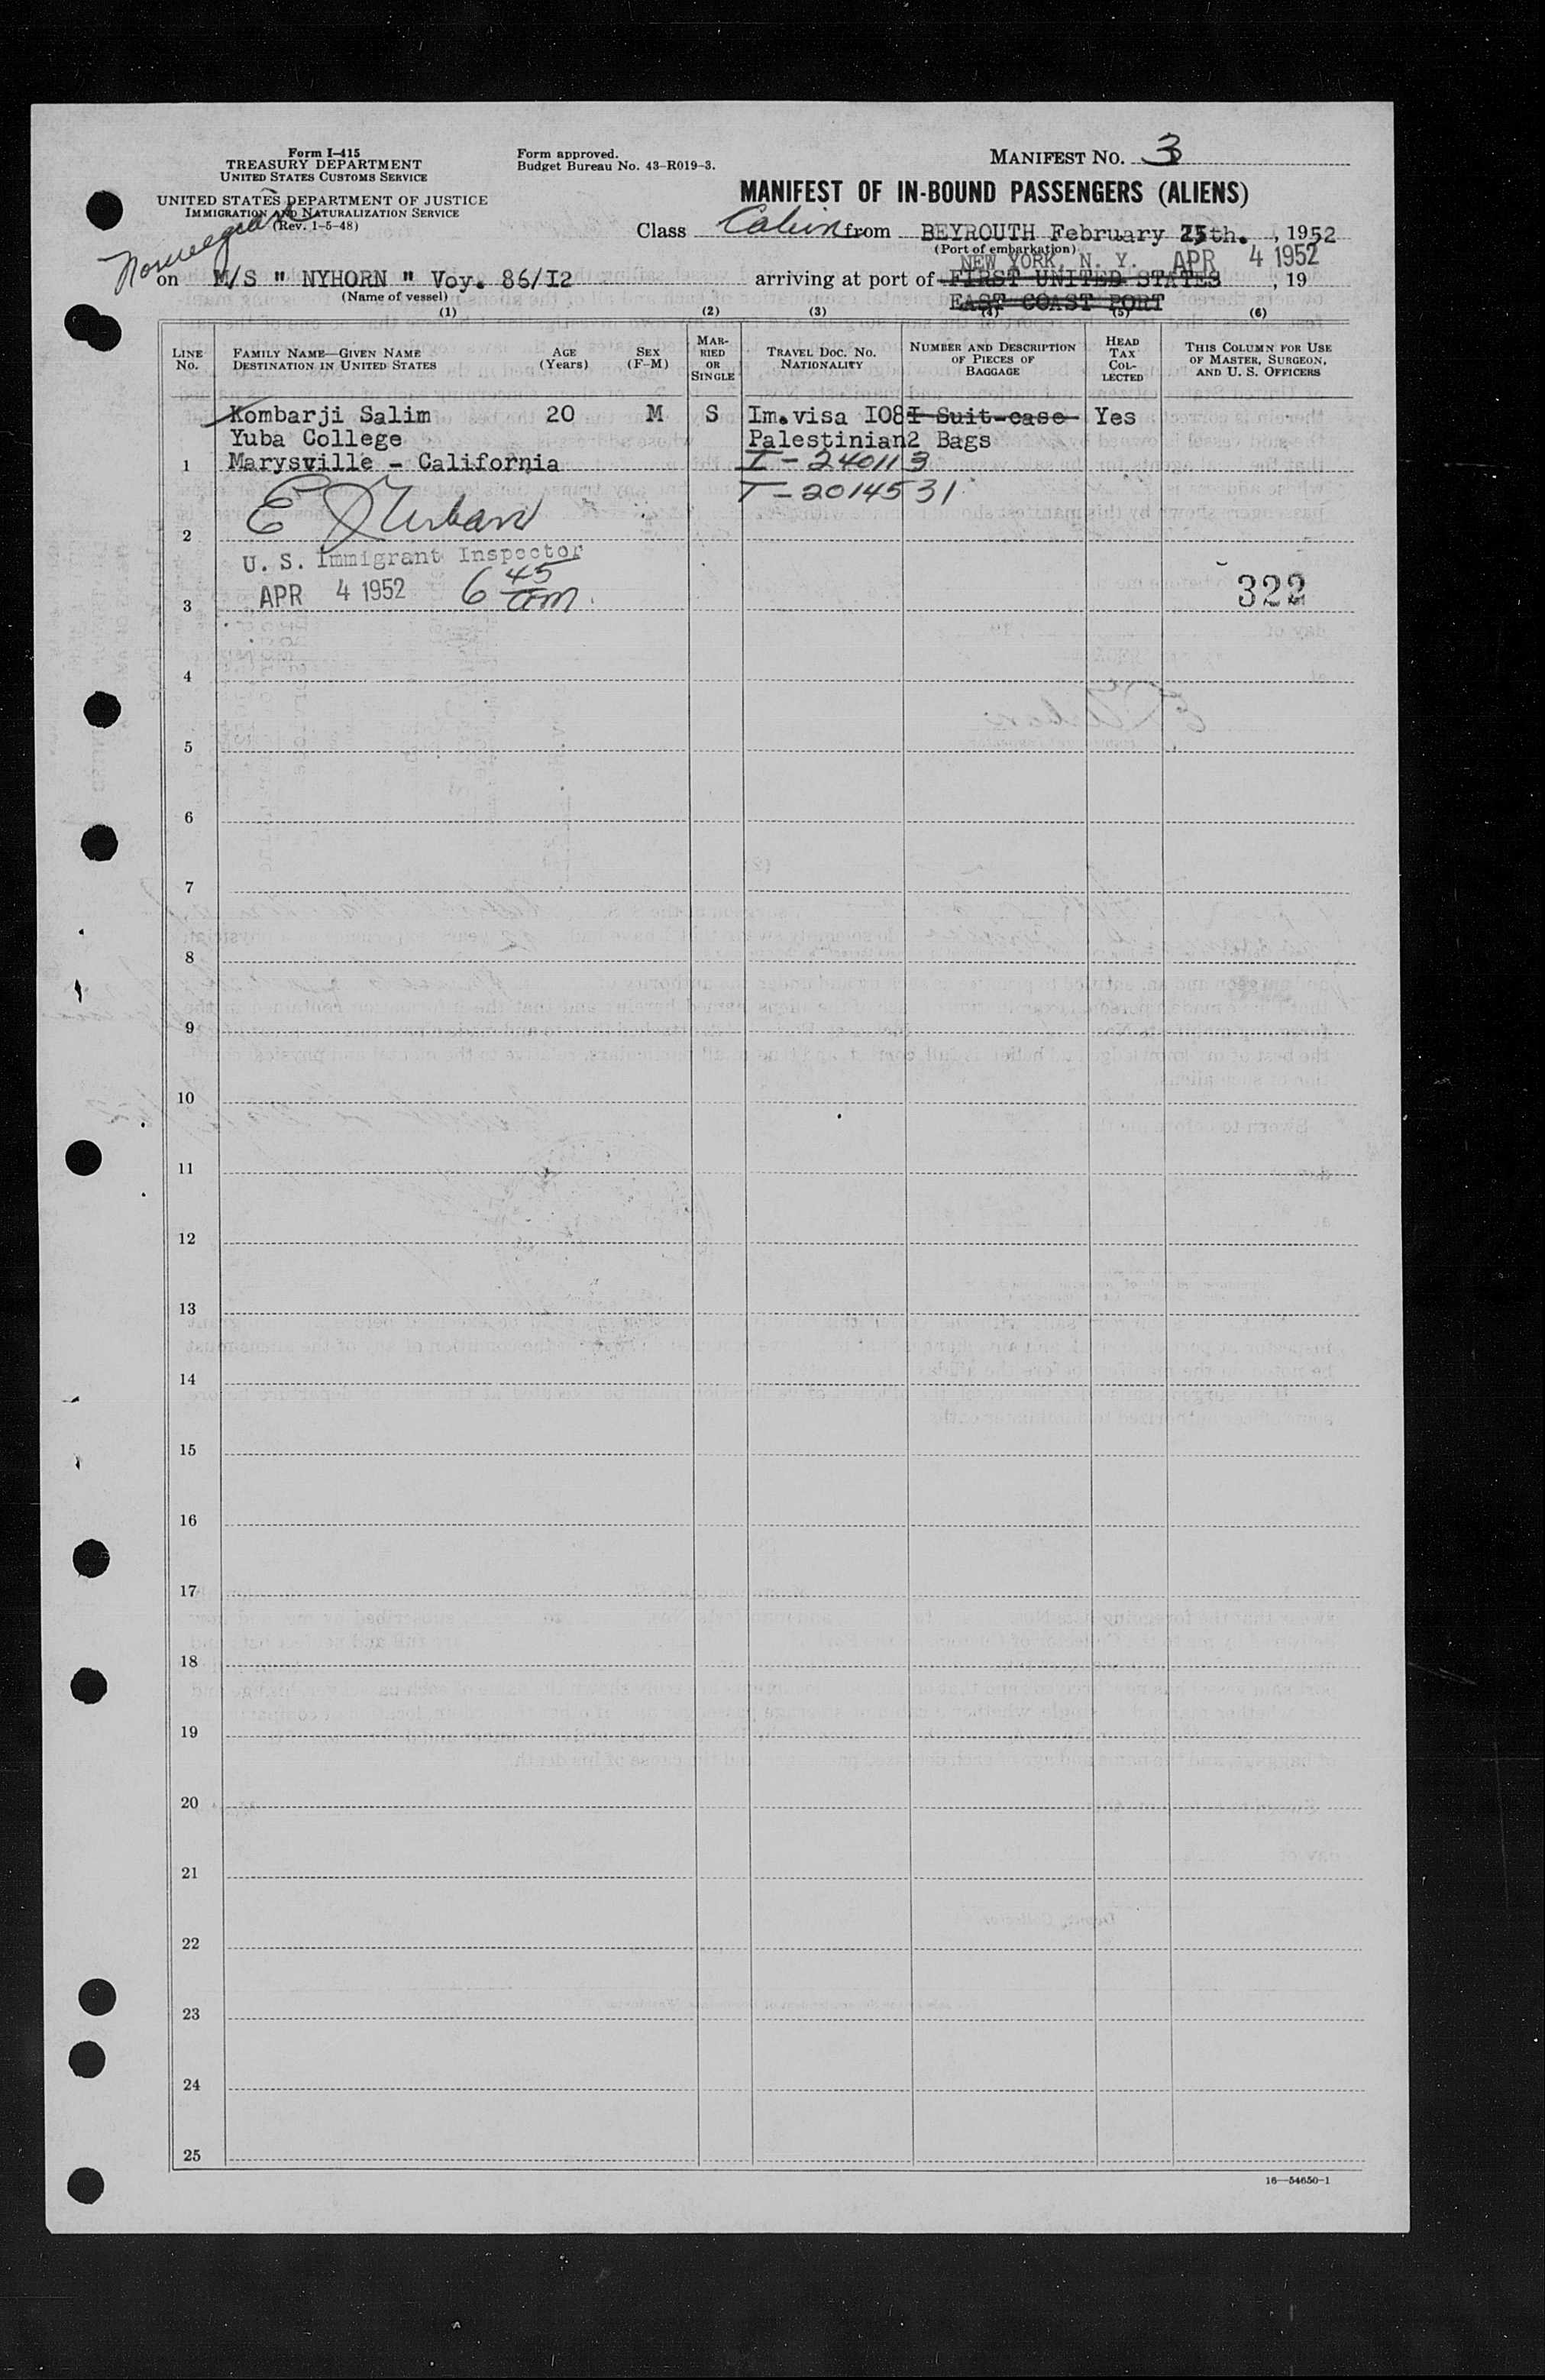 Form I-415
TREASURY DEPARTMENT
UNITED STATES CUSTOMS SERVICE
UNITED STATES DEPARTMENT OF JUSTICE
IMMIGRATION AND NATURALIZATION SERVICE
(Rev. 1-5-48)
Form approved.
Budget Bureau No. 43-R019-3.
MANIFEST NO. 3
MANIFEST OF IN-BOUND PASSENGERS (ALIENS)
Class Cabin from BEYROUTH February 25th. , 1952
(Port of embarkation)
Norwegian
NEW YORK, N. Y. APR 4 1952
on M/S " NYHORN " Voy. 86/I2 arriving at port of FIRST UNITED STATES , 19
(Name of vessel)
EAST COAST PORT
(1) (2) (3) (4) (5) (6)
LINE NO. FAMILY NAME—GIVEN NAME DESTINATION IN UNITED STATES AGE (Years) SEX (F-M) MARRIED OR SINGLE TRAVEL DOC. NO. NATIONALITY NUMBER AND DESCRIPTION OF PIECES OF BAGGAGE HEAD TAX COLLECTED THIS COLUMN FOR USE OF MASTER, SURGEON, AND U. S. OFFICERS
Kombarji Salim 20 M S Im.visa I08 I Suit-case Yes
Yuba College Palestinian 2 Bags
1 Marysville - California I-240113
T-2014531
E J Urban
2
U. S. Immigrant Inspector
APR 4 1952 6 45 am. 322
3
4
5
6
7
8
9
10
11
12
13
14
15
16
17
18
19
20
21
22
23
24
25
16—54650-1